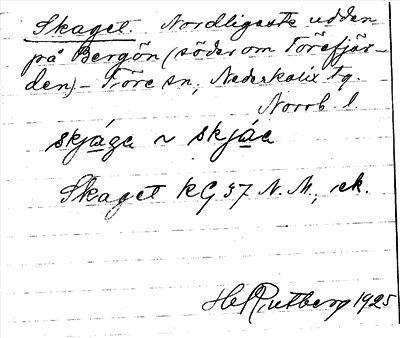 Skaget. Nordligaste udden
på Bergön (söder om Törefjär-
den) – Töre sn, Nederkalix tg.
Norrb. l.
skjága ~ skjáa
Skaget KG 57 N. M., ek.
Hel Rutberg 1925